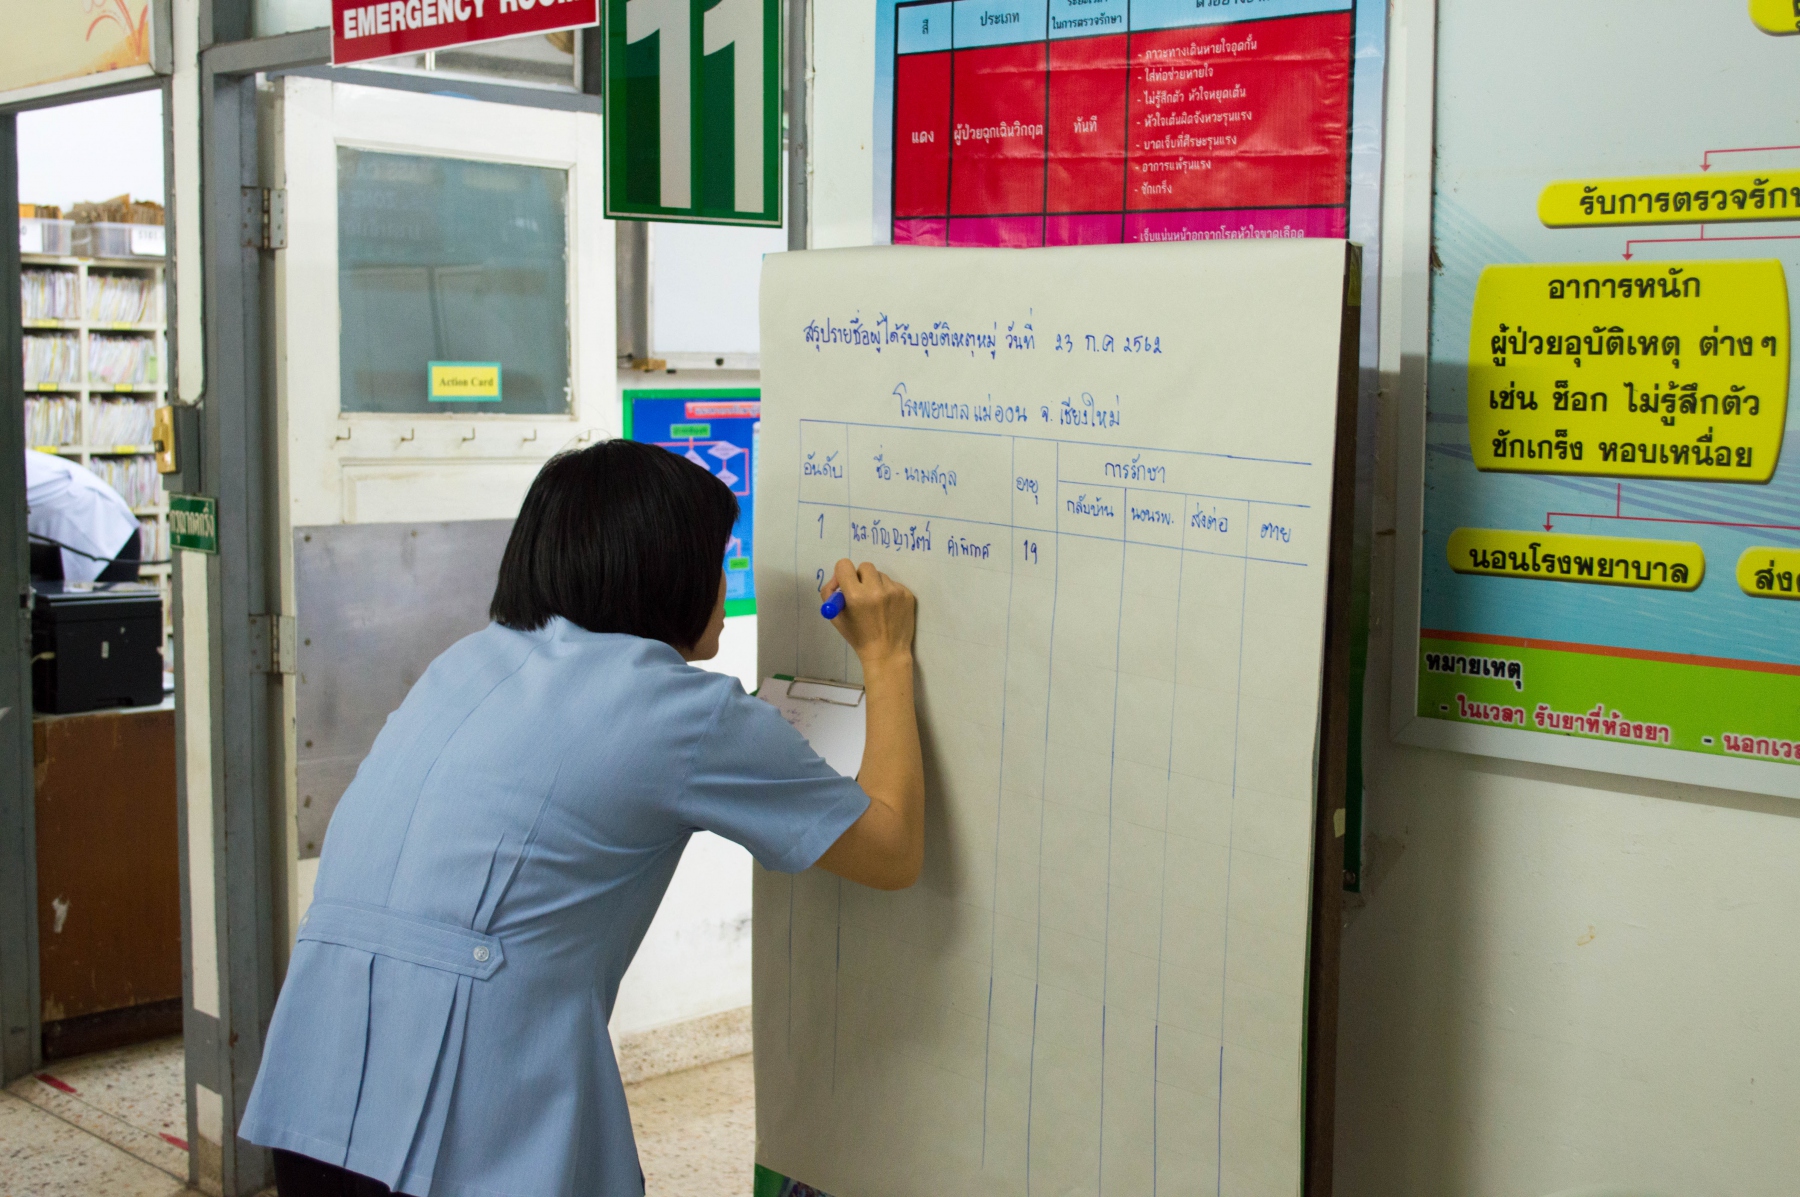 EMERGENCY ROOM
11
สี
ประเภท
ในการตรวจรักษา
แดง
ผู้ป่วยฉุกเฉินวิกฤต
ทันที
- ภาวะทางเดินหายใจอุดกั้น
- ใส่ท่อช่วยหายใจ
- ไม่รู้สึกตัว หัวใจหยุดเต้น
- หัวใจเต้นผิดจังหวะรุนแรง
- บาดเจ็บที่ศีรษะรุนแรง
- อาการแพ้รุนแรง
- ชักเกร็ง
- เจ็บแน่นหน้าอกจากโรคหัวใจขาดเลือด
Action Card
สรุปรายชื่อผู้ได้รับอุบัติเหตุหมู่ วันที่ 23 ก.ค 2562
โรงพยาบาลแม่ออน จ.เชียงใหม่
อันดับ
ชื่อ-นามสกุล
อายุ
การรักษา
กลับบ้าน
นอนรพ.
ส่งต่อ
ตาย
1 นส.กัญญารัตน์ 19
2
รับการตรวจรักษ
อาการหนัก
ผู้ป่วยอุบัติเหตุ ต่างๆ
เช่น ช็อก ไม่รู้สึกตัว
ชักเกร็ง หอบเหนื่อย
นอนโรงพยาบาล
ส่ง
หมายเหตุ
- ในเวลา รับยาที่ห้องยา
- นอกเวล